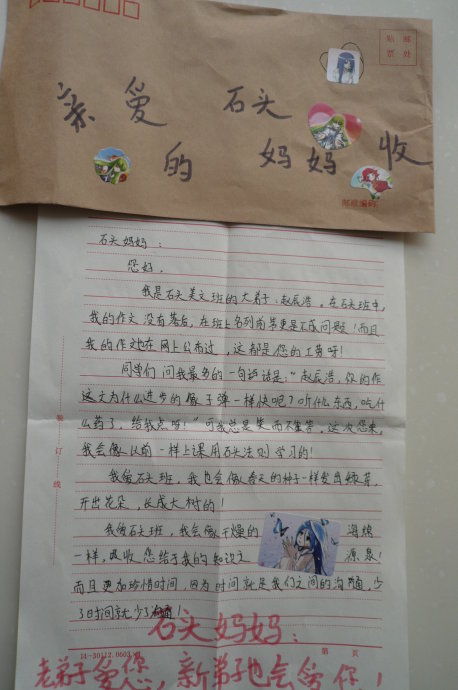 贴 邮
票 处
亲爱 石头
的 妈妈 收
邮政编码
石头妈妈：
您好，
我是石头美文班的大弟子：赵辰浩。在石头班中，
我的作文没有落后，在班上名列前茅更是不成问题！而且
我的作文也在网上公布过，这都是您的功劳呀！
同学们问我最多的一句话是：“赵辰浩，你的作
文为什么进步的像子弹一样快呢？吃什么东西，吃什
么药了，给我点呀！”可我总是笑而不答，这次您来，
我会像以前一样上课用石头法则学习的！
我做石头班，我也会像春天的种子一样发出绿芽，
开出花朵，长成大树的！
我做石头班，我会像干燥的 海绵
一样，吸收您给于我的知识之 源泉！
而且更加珍惜时间，因为时间就是我们之间的沟通，少
了时间就少了 ！
装订线
石头妈妈：
14-30112.0603 第 页
老弟子爱您，新弟子也会爱你！